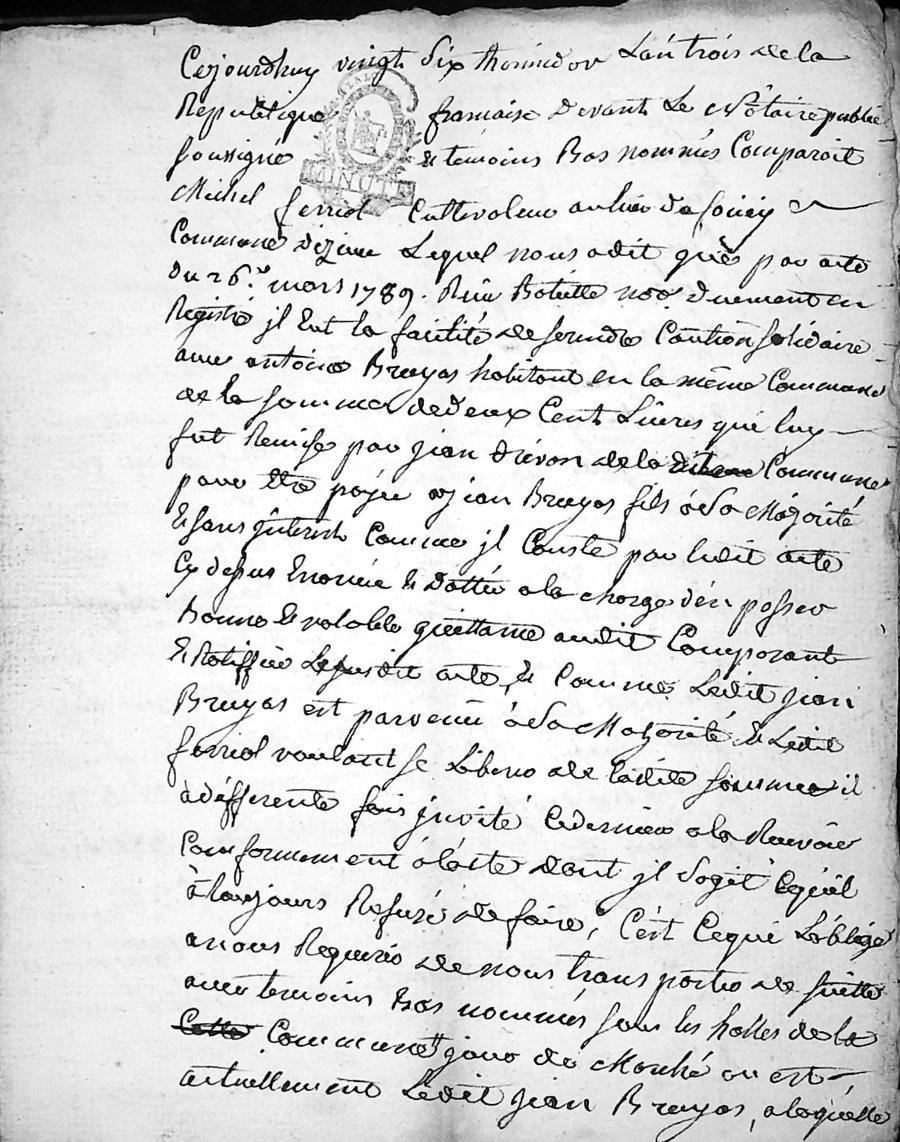 Cejourdhuy vingt six thermidor L'an trois de la
Republique francaise Devant Le Notaire public
soussigné & temoins Bas nommés Comparoit
MINUT
Michel ferriol Cultivateur au lieu de
Commune d'izieu Lequel nous a dit que par acte
Du 26.e mars 1789. Reçu no.re duement en
Registré jl Eut la facilité de se rendre Caution solidaire
avec antoine Bruyas habitant en la même Commune
de la somme de deux Cent Livres qui luy
fut Remise par jean drevon de la Commune
pour Etre payée a jean Bruyas fils à Sa Majorité
& sans jnterest Comme jl Conste par ledit acte
Cy dessus Enoncée & Dattée a la charge d'en passer
Bonne & valable quittance audit Comparant
& Ratiffier Le susdit acte, & Comme Ledit jean
Bruyas est parvenu à Sa Majorité & Ledit
ferriol voulant se Liberer de ladite somme il
a différente fois jnvité Cedernier a la Recevoir
Conformement à l'acte dont jl S'agit Cequil
à toujours Refusé de faire, C'est Cequi L'oblige
a nous Requerir de nous transporter de suitte
avec temoins Bas nommés sous les halles de la
Cette Commune jour de Marché ou est
actuellement Ledit jean Bruyas, a laquelle